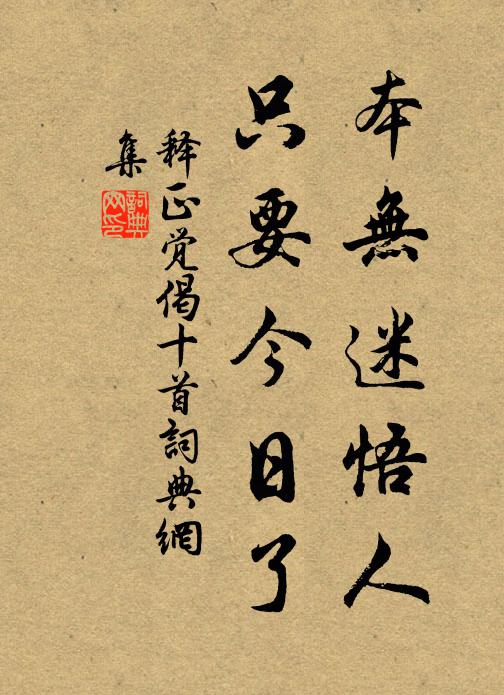 本無迷悟人
只要今日了
释正觉偈十首詞典網
集
詞典網印